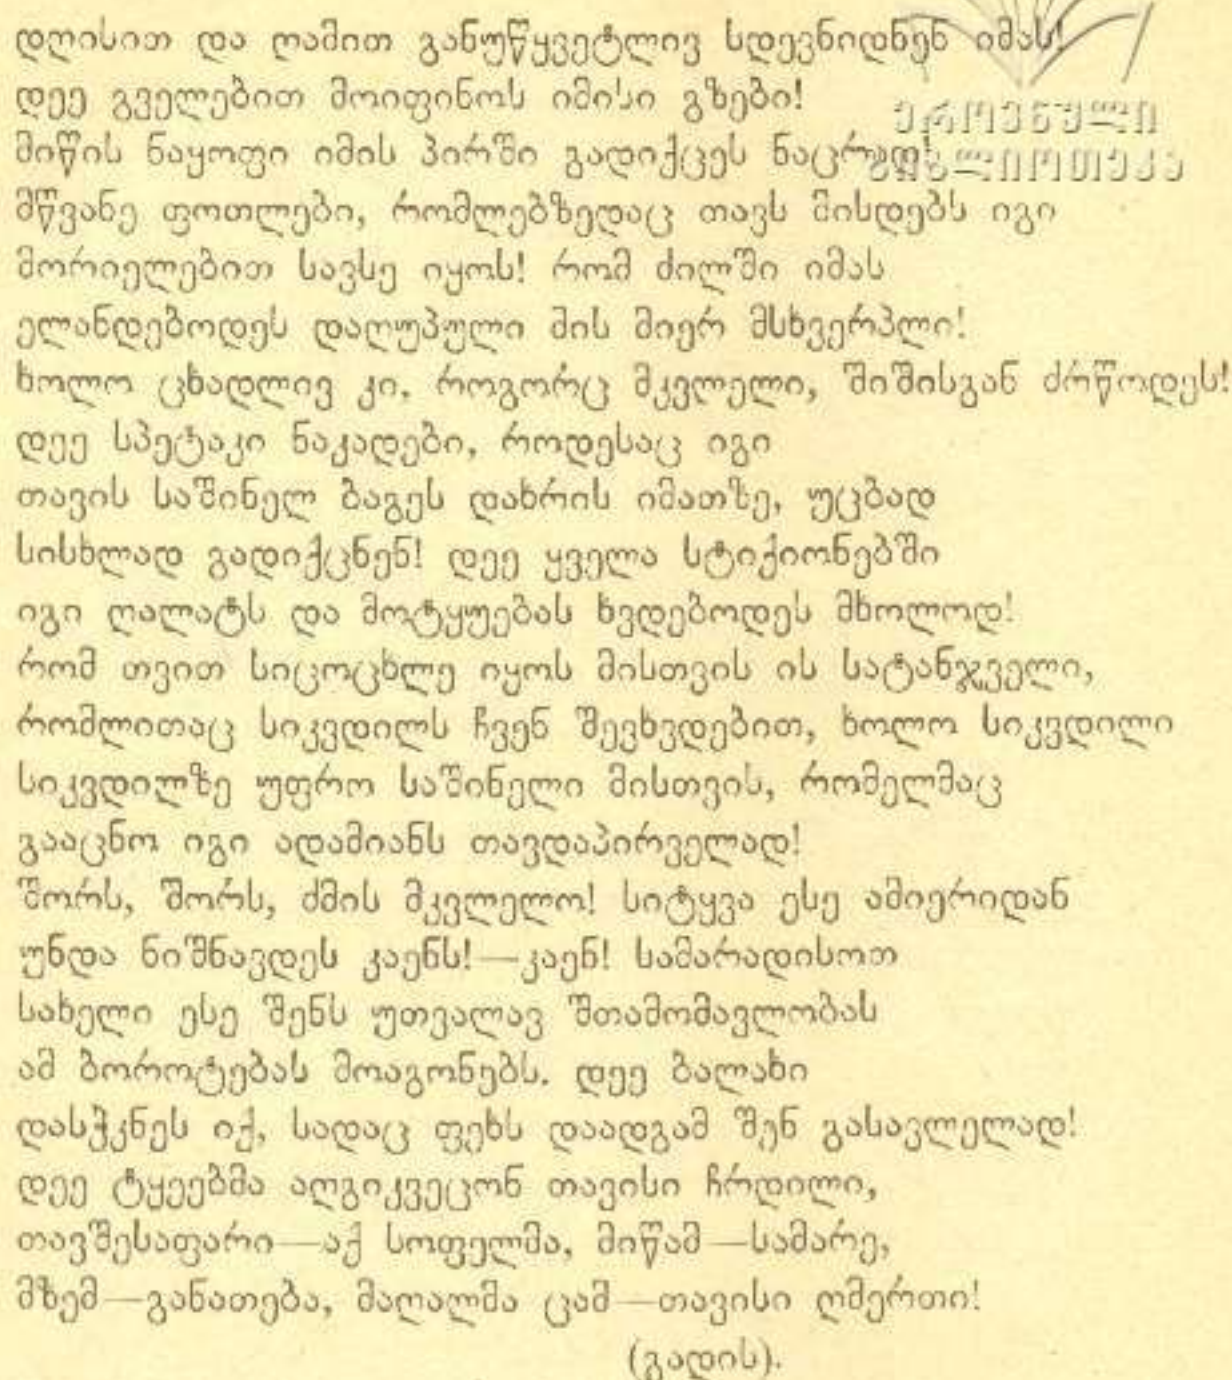 დღისით და ღამით განუწყვეტლივ სდევნიდნენ იმას!
დეე გველებით მოიფინოს იმისი გზები!
ეროვნული
მიწის ნაყოფი იმის პირში გადიქცეს ნაცრად!
ბიბლიოთეკა
მწვანე ფოთლები, რომლებზედაც თავს მისდებს იგი
მორიელებით სავსე იყოს! რომ ძილში იმას
ელანდებოდეს დაღუპული მის მიერ მსხვერპლი!
ხოლო ცხადლივ კი, როგორც მკვლელი, შიშისგან ძრწოდეს!
დეე სპეტაკი ნაკადები, როდესაც იგი
თავის საშინელ ბაგეს დახრის იმათზე, უცბად
სისხლად გადიქცნენ! დეე ყველა სტიქიონებში
იგი ღალატს და მოტყუებას ხვდებოდეს მხოლოდ!
რომ თვით სიცოცხლე იყოს მისთვის ის სატანჯველი,
რომლითაც სიკვდილს ჩვენ შევხვდებით, ხოლო სიკვდილი
სიკვდილზე უფრო საშინელი მისთვის, რომელმაც
გააცნო იგი ადამიანს თავდაპირველად!
შორს, შორს, ძმის მკვლელო! სიტყვა ესე ამიერიდან
უნდა ნიშნავდეს კაენს!—კაენ! სამარადისოთ
სახელი ესე შენს უთვალავ შთამომავლობას
ამ ბოროტებას მოაგონებს. დეე ბალახი
დასჭკნეს იქ, სადაც ფეხს დაადგამ შენ გასავლელად!
დეე ტყეებმა აღგიკვეცონ თავისი ჩრდილი,
თავშესაფარი—აქ სოფელმა, მიწამ—სამარე,
მზემ—განათება, მაღალმა ცამ—თავისი ღმერთი!
(გადის).